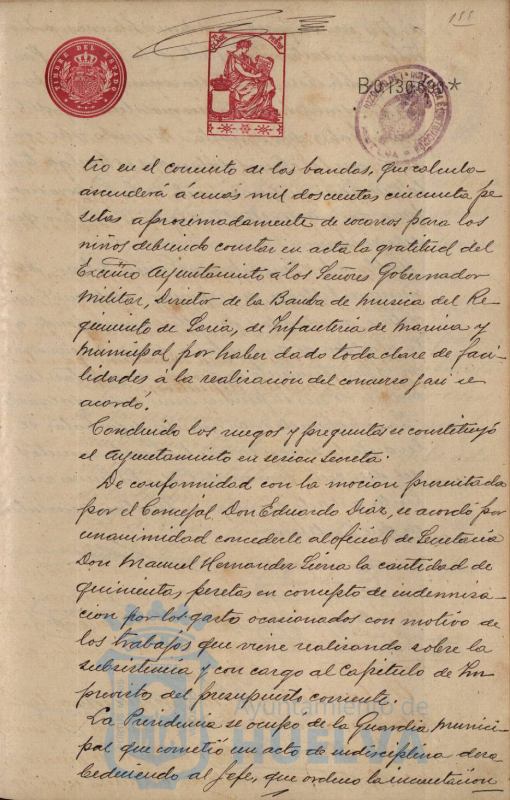 188
TIMBRE DEL ESTADO
B.0.130.595*
tro en el concierto de las bandas, que calcula
ascenderá á unas mil doscientas cincuenta pe-
setas aproximadamente de socorros para los
niños debiendo constar en acta la gratitud del
Excmo Ayuntamiento á los Señores Gobernador
Militar, Director de la Banda de musica del Re-
gimiento de Soria, de Infanteria de Marina y
Municipal por haber dado toda clase de faci-
lidades á la realizacion del concurso y asi se
acordó.
Concluido los ruegos y preguntas se constituyó
el Ayuntamiento en sesion secreta.
De conformidad con la mocion presentada
por el Concejal Don Eduardo Diaz, se acordó por
unanimidad concederle al oficial de Secretaria
Don Manuel Hernandez Sierra la cantidad de
quinientas pesetas en concepto de indemniza-
cion por los gasto ocasionados con motivo de
los trabajos que viene realizando sobre la
subsistencia y con cargo al Capitulo de Im
previsto del presupuesto corriente.
La Presidencia se ocupó de la Guardia Munici-
pal que cometió un acto de indisciplina deso-
bedeciendo al Jefe, que ordeno la incautacion
Ayuntamiento de
HUELVA